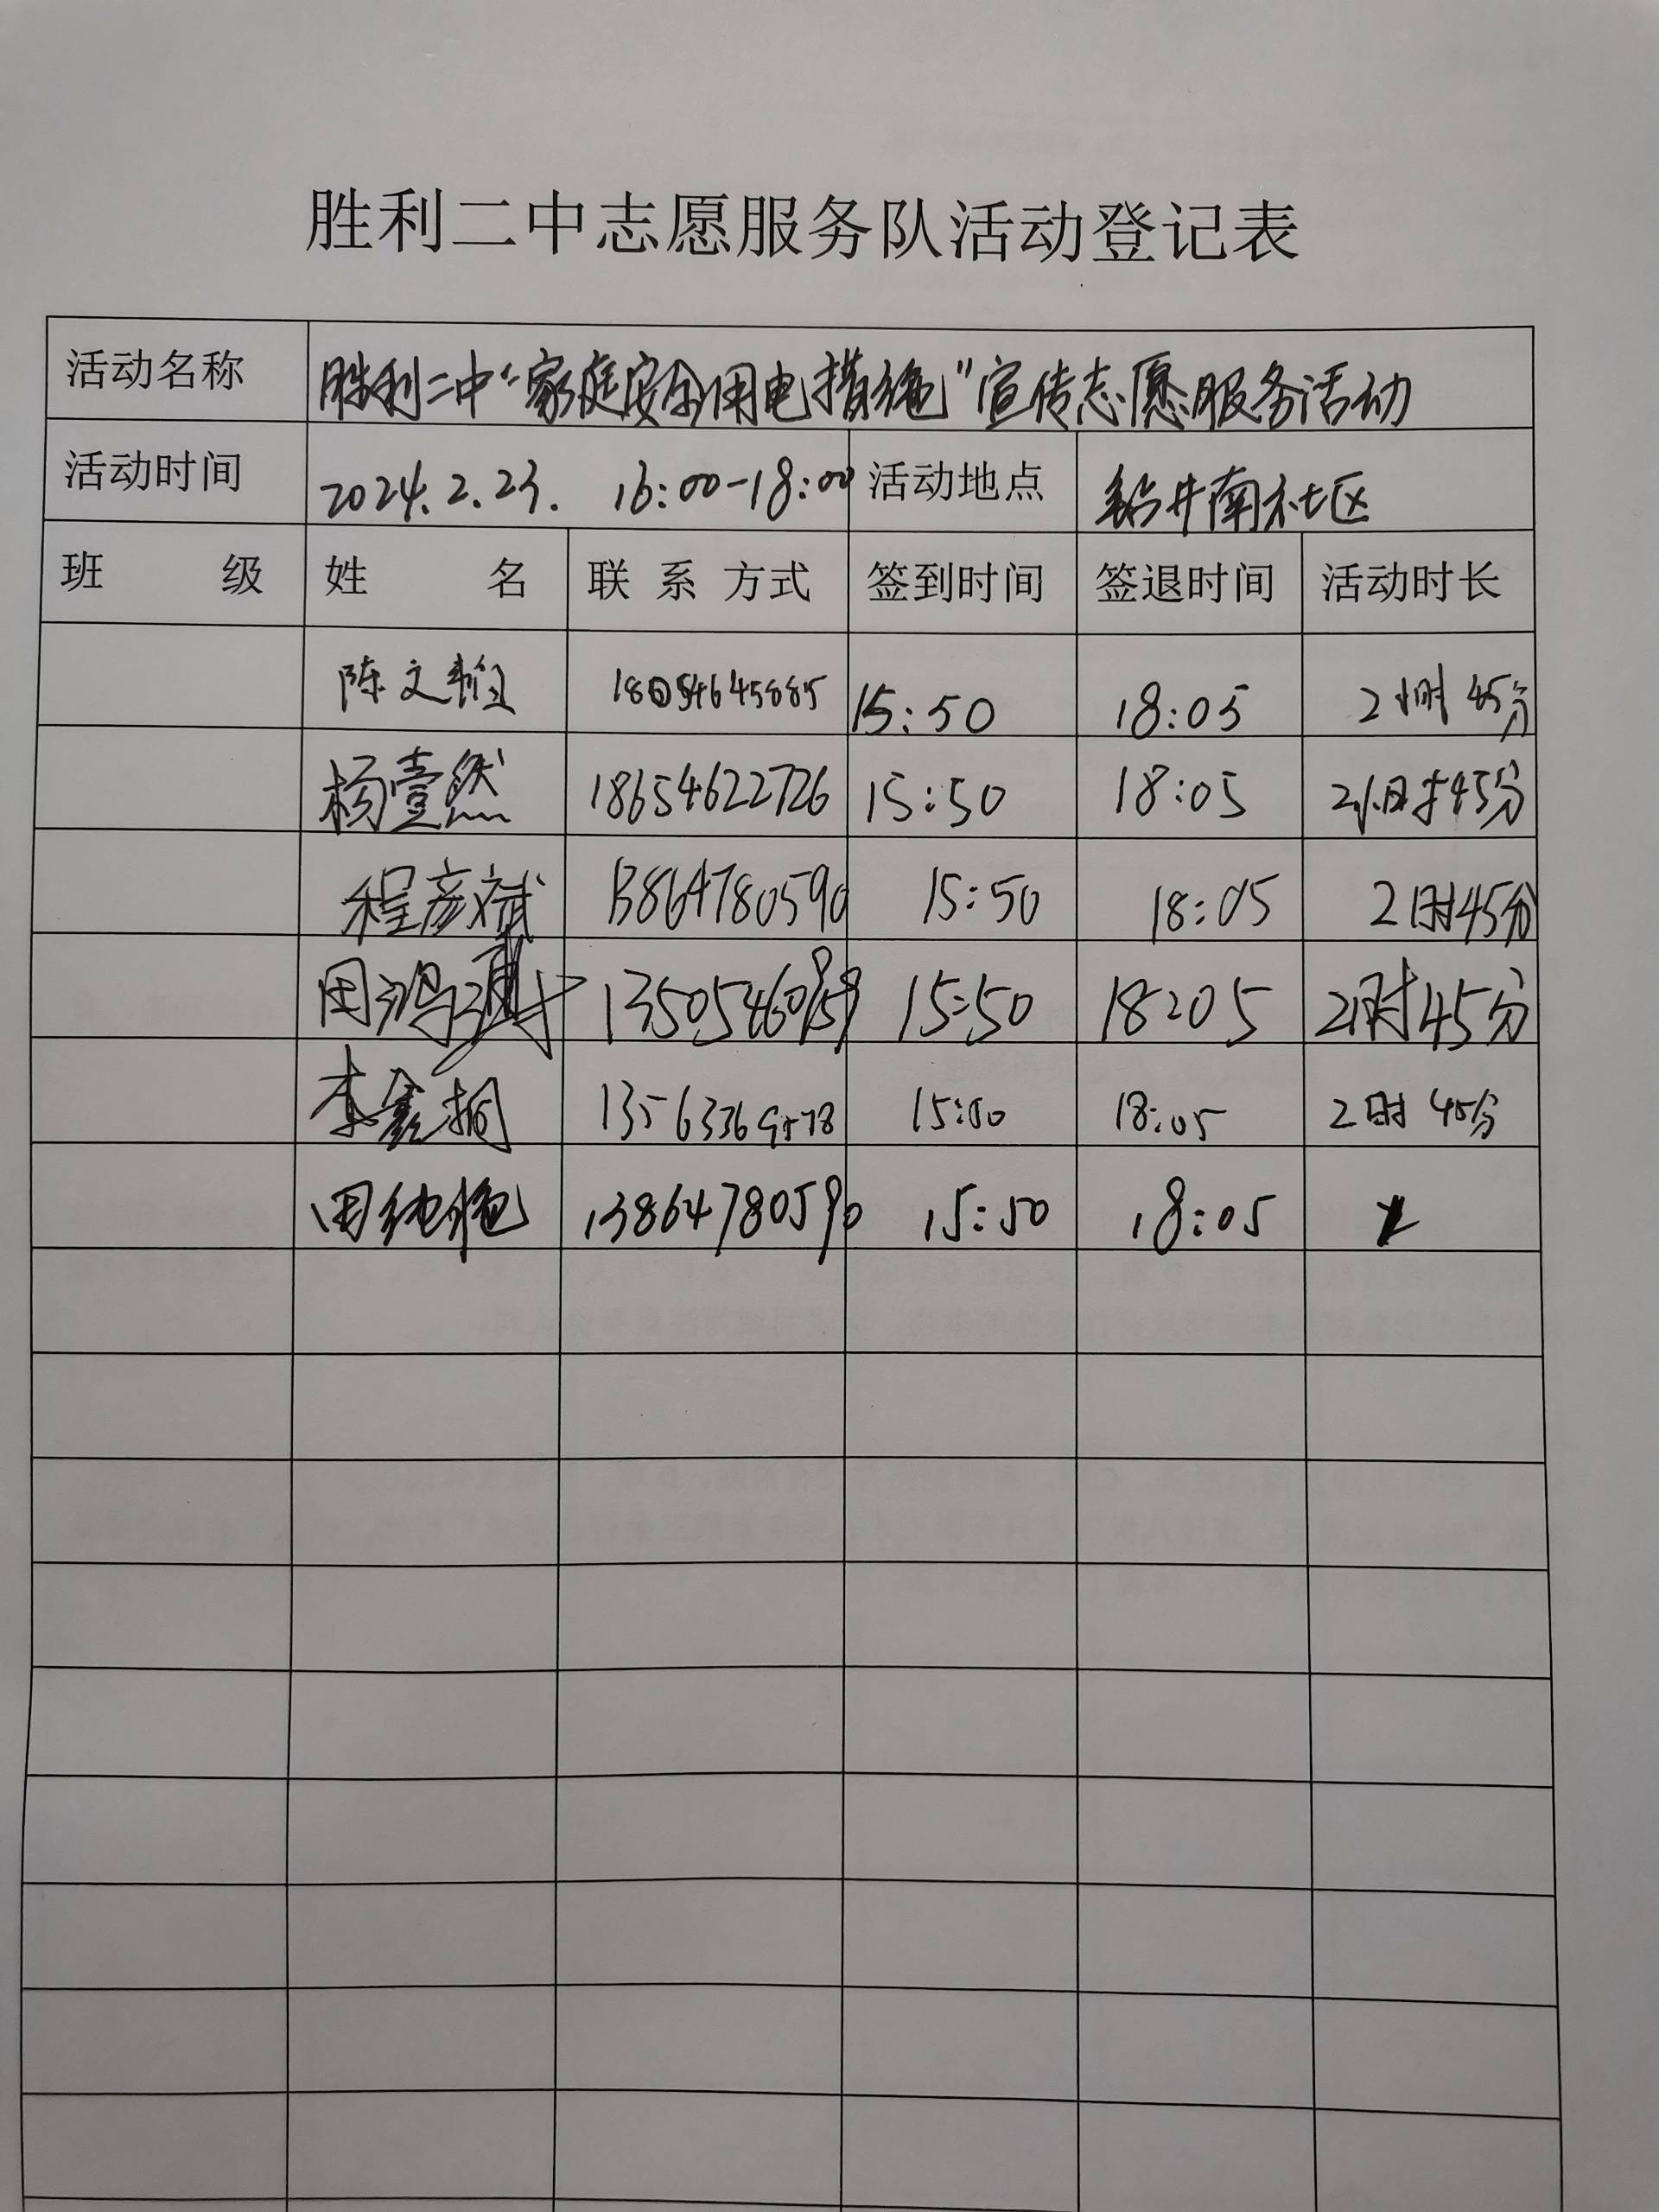 胜利二中志愿服务队活动登记表
活动名称 胜利二中“家庭安全用电措施”宣传志愿服务活动
活动时间 2024.2.23. 16:00-18:00 活动地点 钻井南社区
班 级 姓 名 联 系 方式 签到时间 签退时间 活动时长
陈文 18054645885 15:50 18:05 2小时45分
杨壹然 18654622726 15:50 18:05 2小时45分
程彦斌 13864780590 15:50 18:05 2时45分
15:50 18:05 2时45分
李鑫桐 15:50 18:05 2时45分
13864780590 15:50 18:05